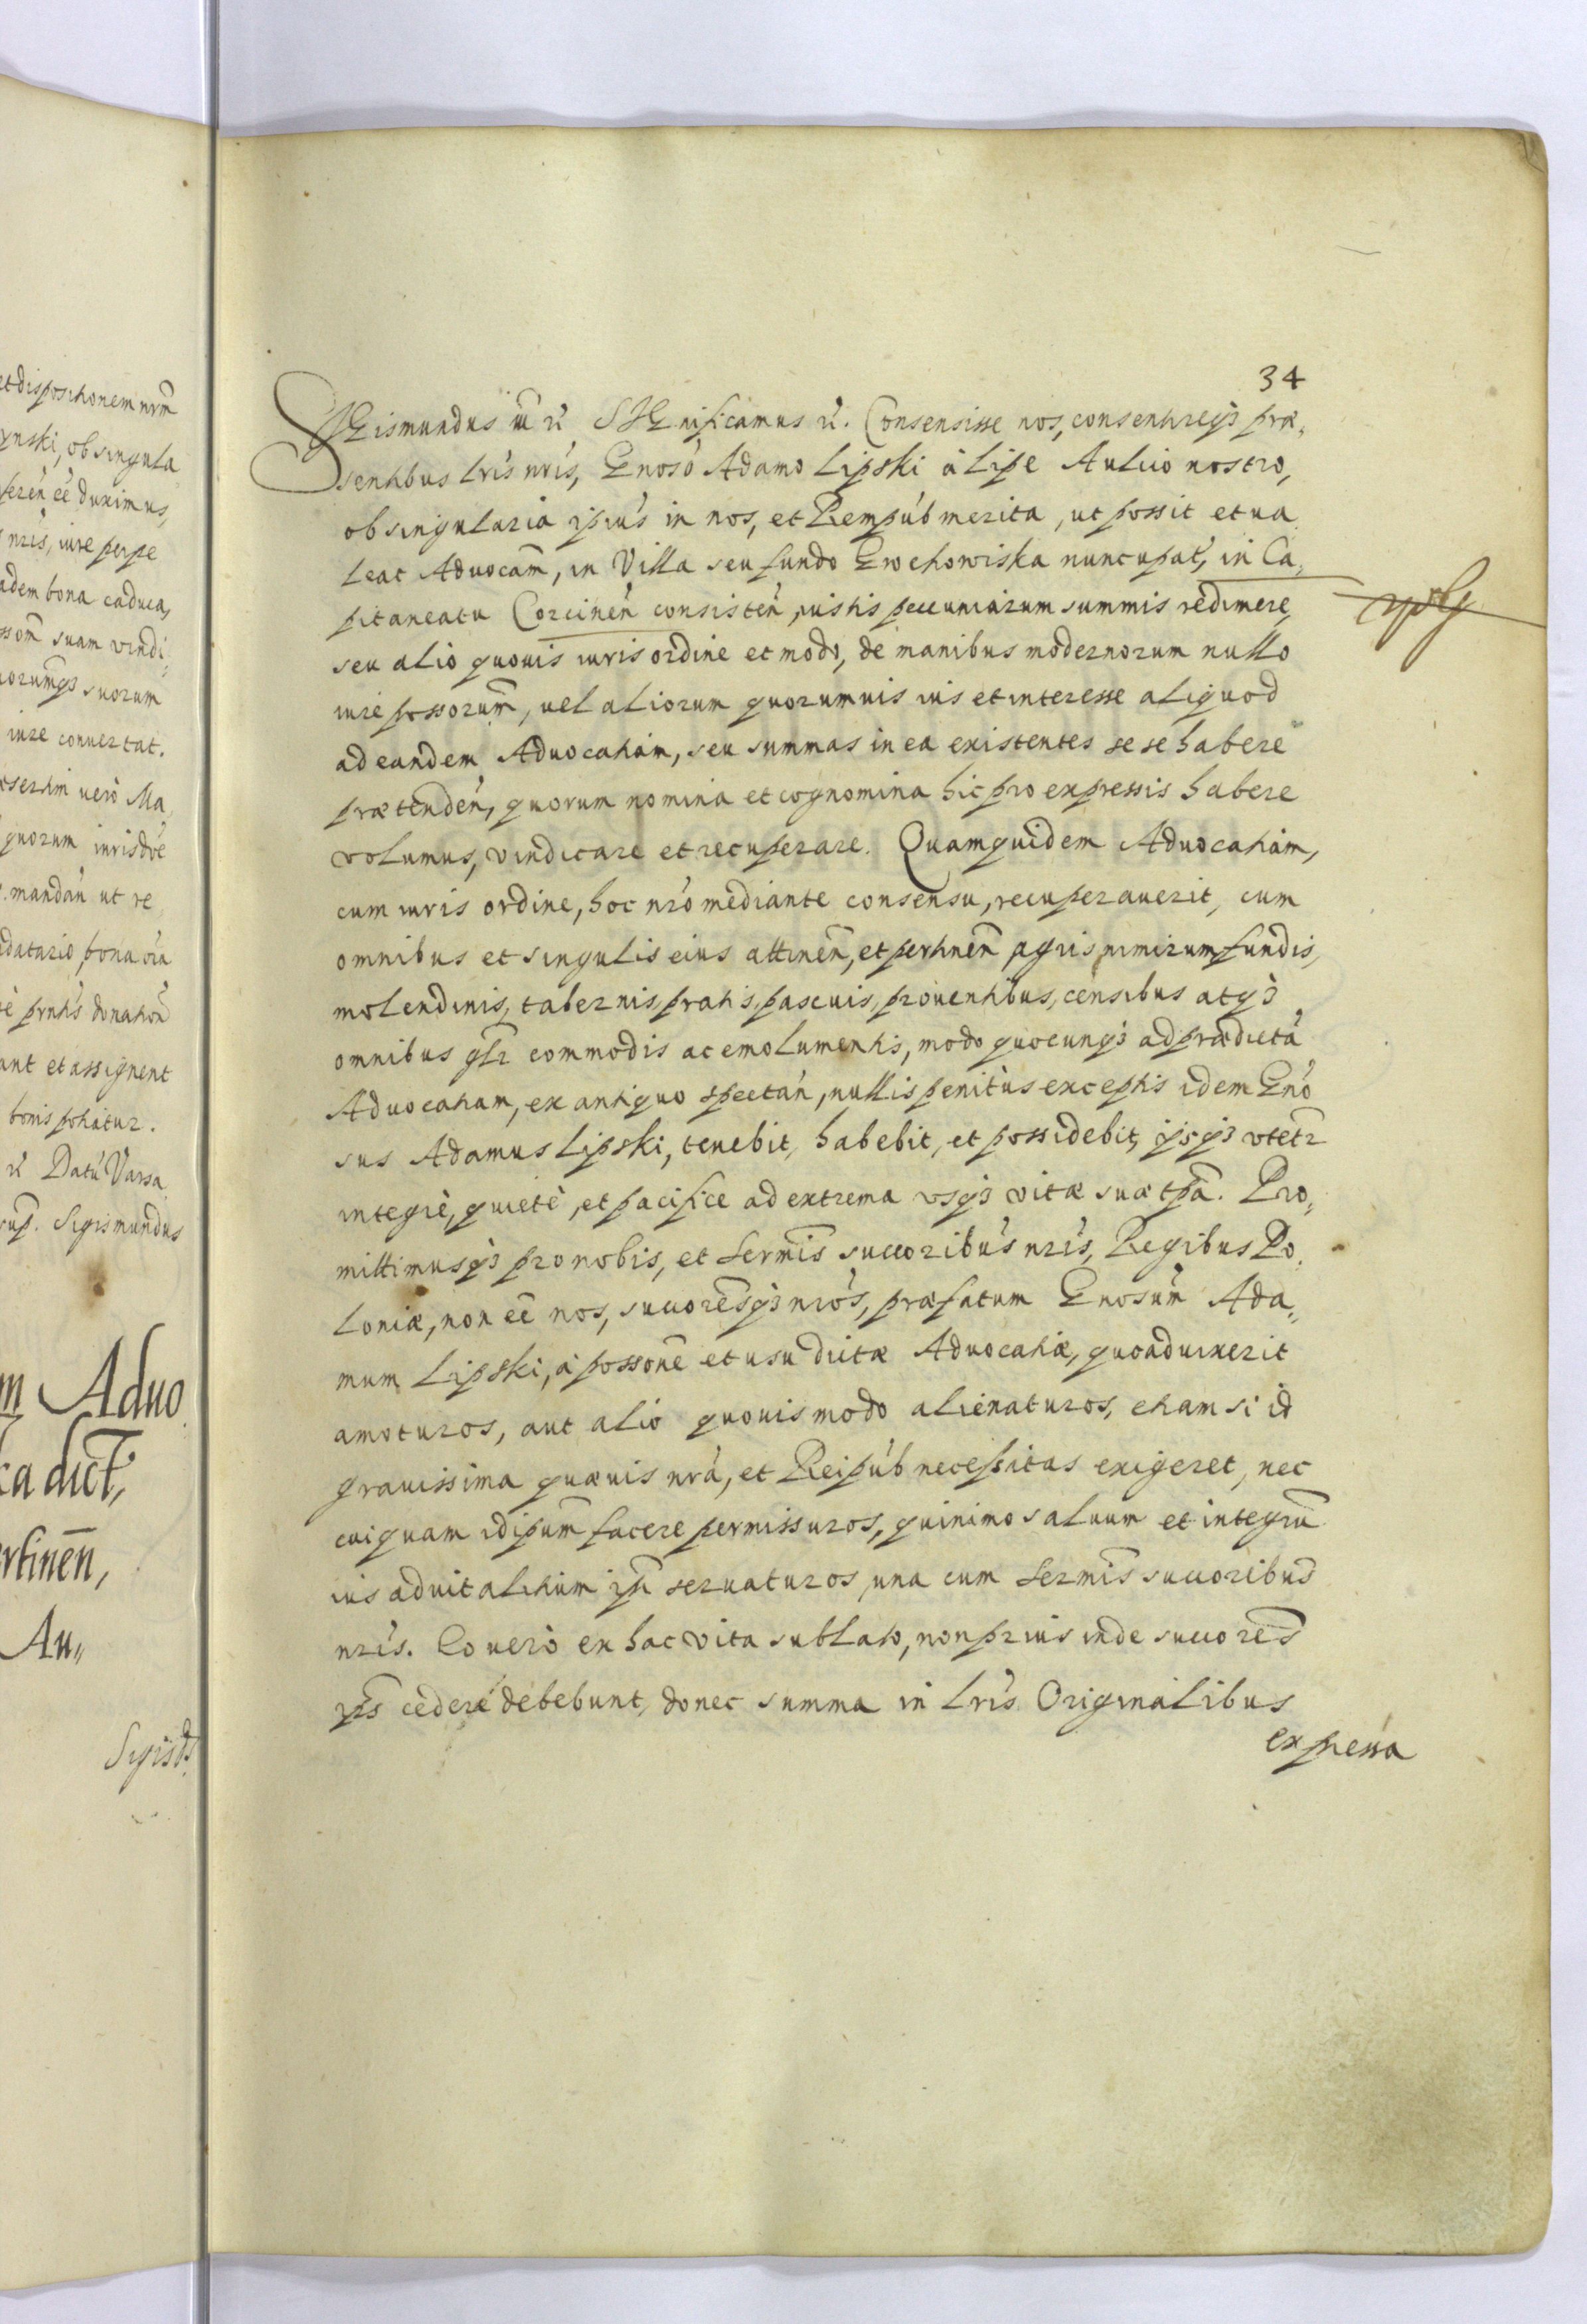 et disposihonem nrm̃
ynski, ob singula
feren̂ eê duximus,
nris, iure perpe
adem bona caduca,
ssom̃ suam vindi
iorumq3 suorum
iure convertat.
serhm verò Ma
quorum iurisdoê
mandan̂ ut re
datario, bona oia
prnhs donahon̂
ant et assignent
bonis pohatur.
Datu Varsa
Sigismundus
m Aduo
ca dict,
rtinen̄,
Au,,
Sigisd̃s
34
SIGismundus III r̂ SIGnificamus r̂. Consensisse nos, consenhreq3 præ,
senhbus lris nris, Gnoso Adamo Lipski à Lipe Aulico nostro,
ob singularia ipius in nos, et Rempub merita, ut possit et ua
leat Aduocam̃, in Villa seu fundo Grochowiska nuncupat, in Ca,
pitaneatu Corcinen̂ consisten̂, iustis pecuniarum summis redimere,
seu alio quouis iuris ordine et modo, de manibus modernorum nullo
iure possorum̃, uel aliorum quorumuis ius et interesse aliquod
ad eandem Aduocaham, seu summas in ea existentes se se habere
prætenden̂, quorum nomina et cognomina hic pro expressis habere
volumus, vindicare et recuperare. Quamquidem Aduocaham,
cum iuris ordine, hoc nro mediante consensu, recuperauerit, cum
omnibus et singulis eius attinen̂, et perhnen̂ agris nimirum fundis,
molendinis, tabernis, prahs, pascuis, prouenhbus, censibus atq3
omnibus glr̃ commodis ac emolumenhs, modo quocunq3 ad prædicta
Aduocaham, ex anhquo spectan̂, nullis penitùs excephs idem Gno
sus Adamus Lipski, tenebit, habebit, et possidebit, ijsq3 vtetr̃
integrè, quietè, et pacifice ad extrema vsq3 vitæ suæ tpã. Pro,,
mittimusq3 pro nobis, et Sermis̃ succoribus nris, Regibus Po,
loniæ, non eẽ nos, succoresq3 nros, præfatum Gnosum Ada,,
mum Lipski, à possone et usu dictæ Aduocahæ, quoad uixerit
amoturos, aut alio quouis modo alienaturos, eham si id
grauissima quæuis nra, et Reipub necessitas exigeret, nec
cuiquam idipum facere permissuros, quinimo saluum et integrũ
ius aduitalihum ipĩ seruaturos, una cum Sermis̃ succoribus
nris. Eo uerò ex hac vita sublato, non prius inde succores̃
ips̃ cedere debebunt, donec summa in lris Originalibus
expressa